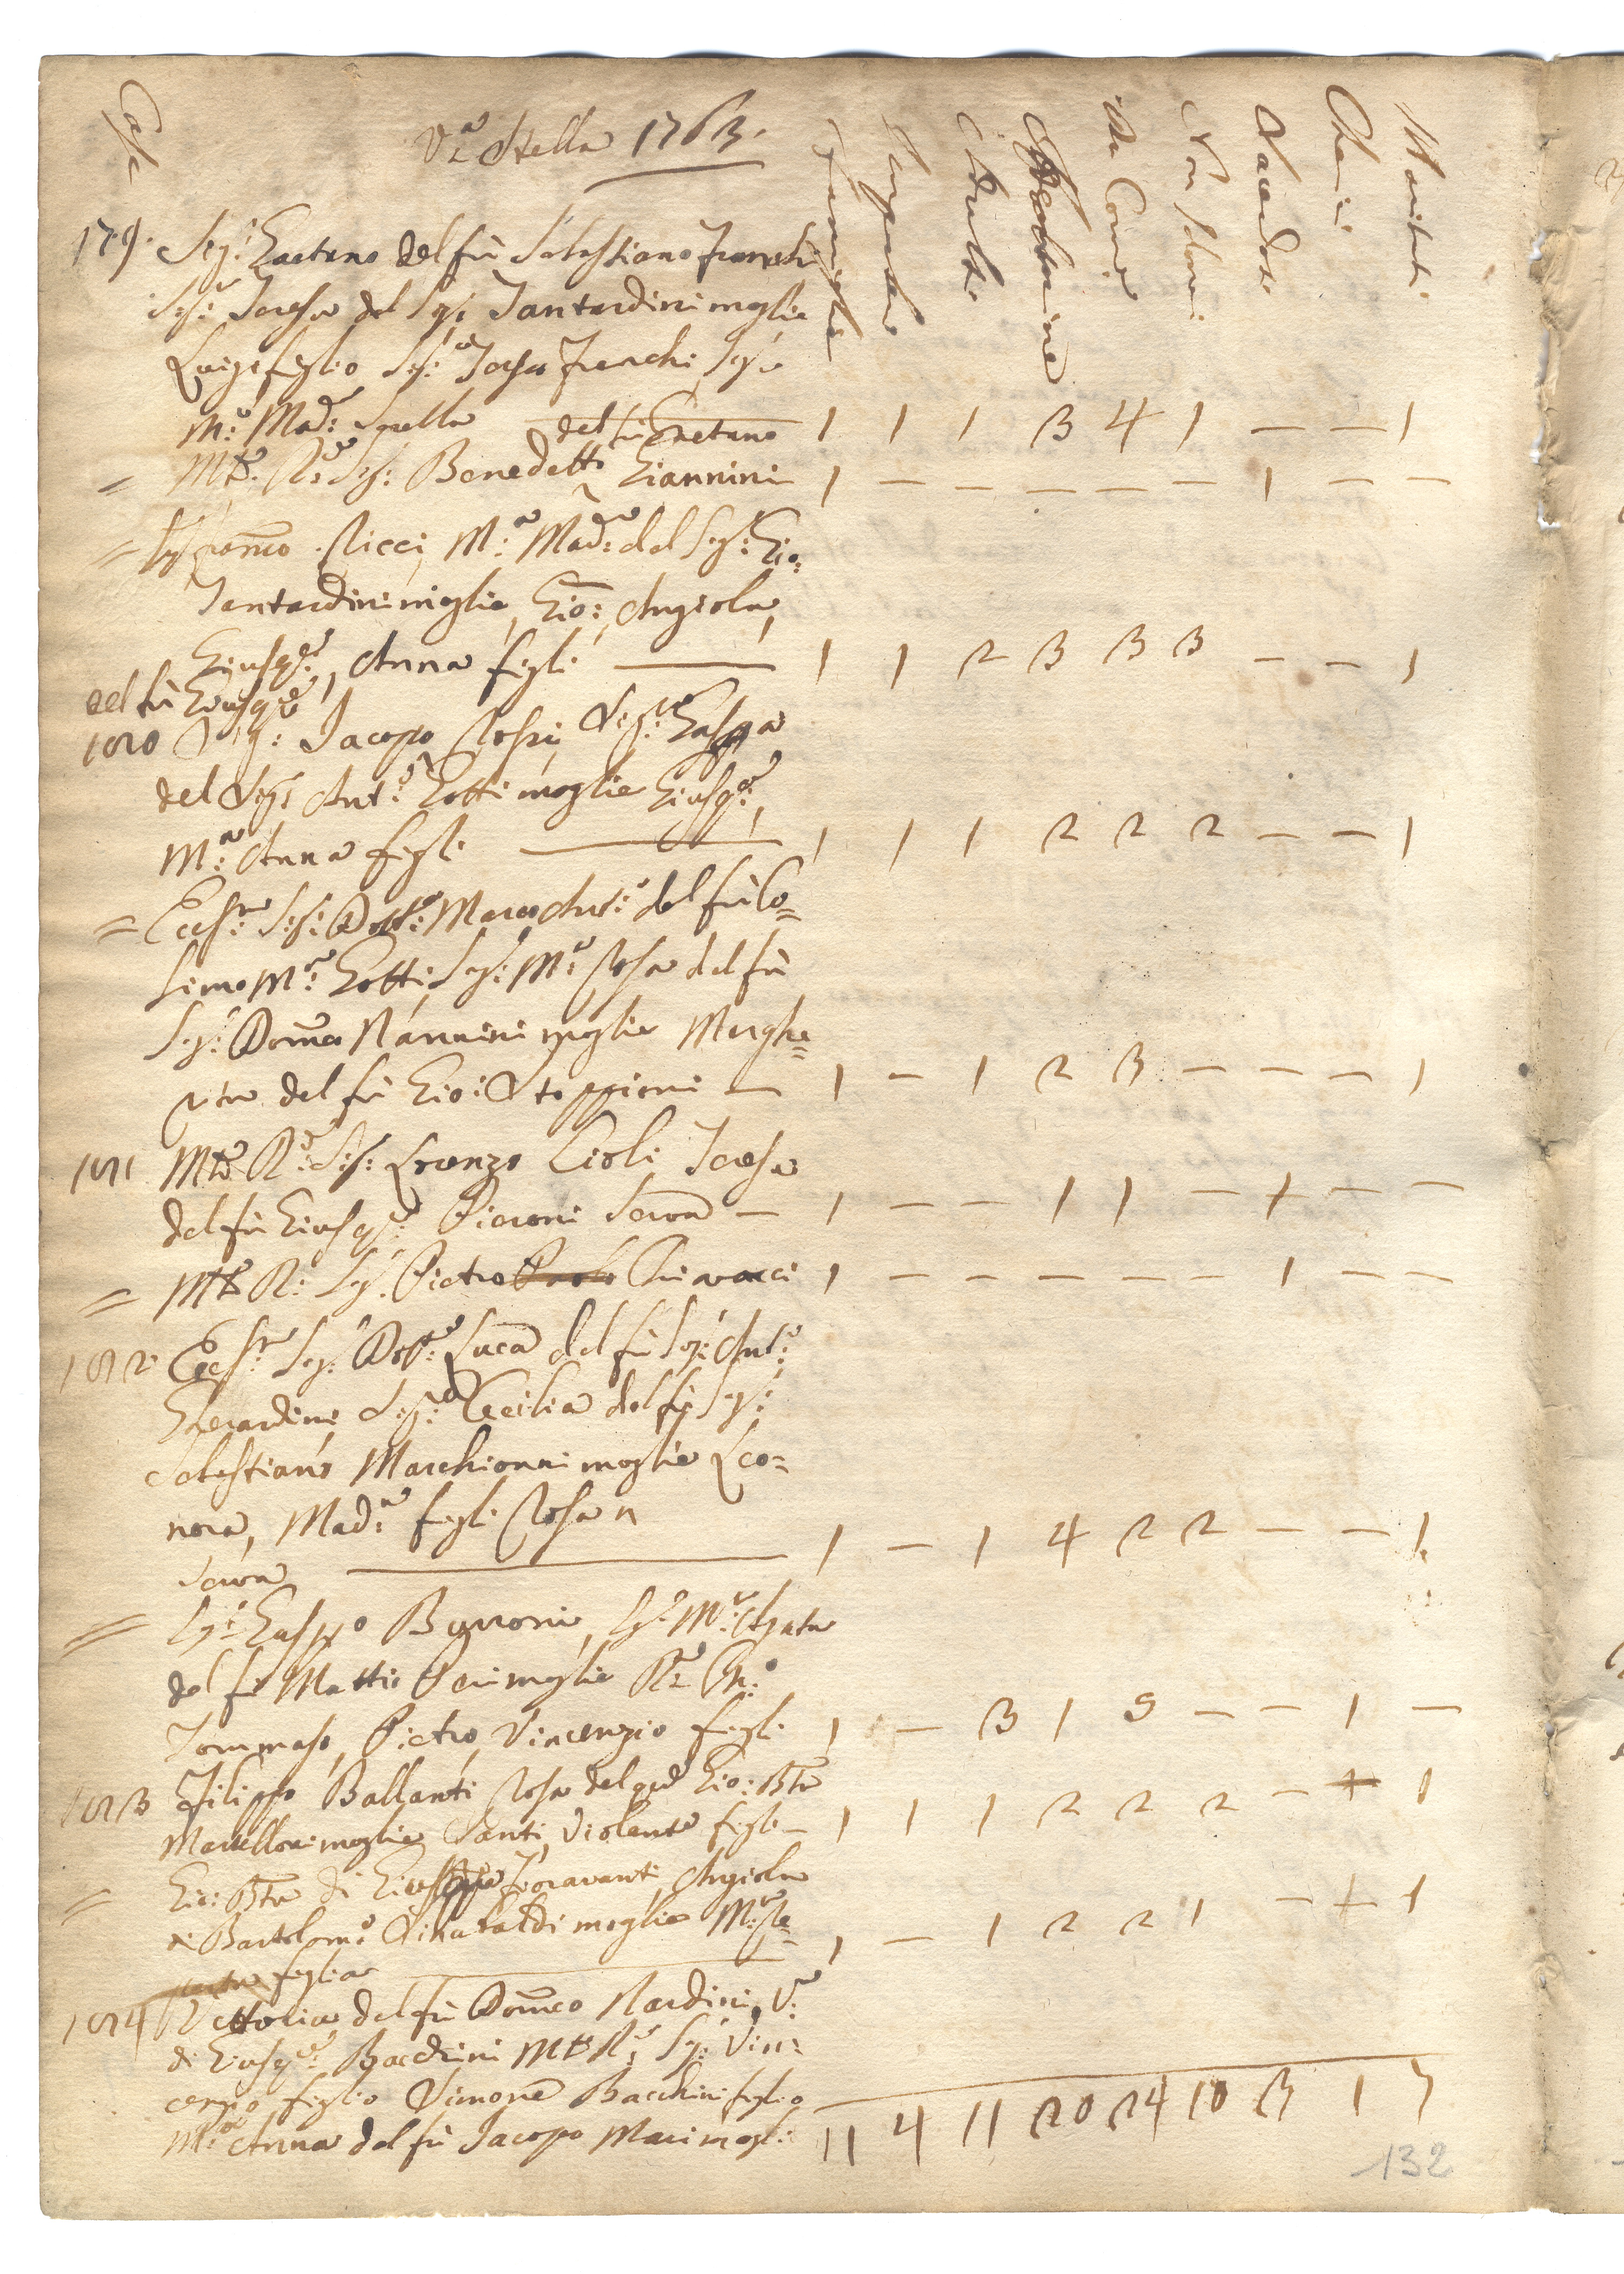 Case
Via Stella 1763.
Famiglie
Impuberi
Adulti
Adoloscine
Da Comu
Non Idonei
Sacerdoti
Cherici
Maritati
179. Sig: Gaetano del fù Sebastiano Franchi
Sig:ra Teresa del Sig: Tantardini moglie
Luigi figlio Sig:ra Teresa Franchi Sig:ra
M:a Mad:a Sorella del fù Gaetano 1 1 1 3 4 1 — — 1
= Mto. R:do Sig: Benedetto Giannini 1 — — — — — 1 — —
= Sig: Domco Ricci, M:a Mad:a del Sig: Gio:
Tantardini moglie, Gio: Angiola,
Giusep:e, Anna figli 1 1 2 3 3 3 — — 1
del fù Giusepe
180 Sig: Jacopo Rossi, Sig:ra Gaspa
del Sig: Ant:o Gotti moglie Giusep:e,
M:a Anna figli 1 1 1 2 2 2 — — 1
= Eccl:mo Sig: Dott:e Marco Ant:o del fù Co=
simo M:a Gotti Sig:ra M:a Rosa del fù
Sig: Domco Nannini moglie Marghe=
rita del fù Gio: Stoppioni — 1 — 1 2 3 — — — 1
181 Mto. R:do Sig: Lorenzo Cioli Teresa
del fù Giusep:e Pieroni Serva — 1 — — 1 1 — 1 — —
= Mto R: Sig. Pietro Paolo Chiavacci 1 — — — — — 1 — —
182 Eccl:mo Sig: Dott:e Luca del fù Sig: Ant:o
Gherardini Sig:ra Cecilia del fù Sig:
Sebastiano Marchionni moglie Leo=
nora, Mad:a figli Rosa n
Serva 1 — 1 4 2 2 — — 1
= Sig: Gasppo Bignoni, Sig:ra M:a Agata
del fù Mattio moglie R:
Tommaso, Pietro, Vincenzio figli 1 — 3 1 5 — — 1 —
183 Filippo Ballanti Rosa del qd Gio: Bta
moglie Santi, Violante figli — 1 1 1 2 2 2 — + 1
= Gio: Bta di Giuseppe Fioravanti, Angiola
di Bartolom:o Sinabaldi moglie M:a Re=
figlia 1 — 1 2 2 1 — + 1
184 Vettoria del fù Domco Nardini, V:a
di Giusep:e Bacchini Mto R: Sig: Vin=
cenzio figlio Simone Bacchini figlio
M:a Anna del fù Jacopo Mari mogl:
11 4 11 20 24 10 3 1 7
132